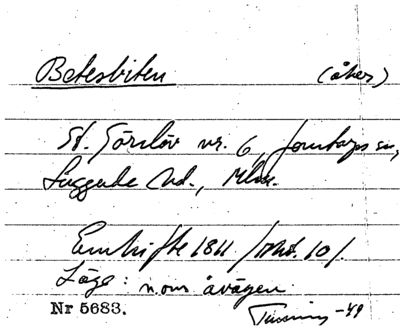 Betesbiten (åker)
St. Görslöv nr. 6, Jonstorps sn,
Luggude hd., Mlm.
Enskifte 1811 /Akt. 10/.
Läge: n.om åvägen.
Nr 5683. -49